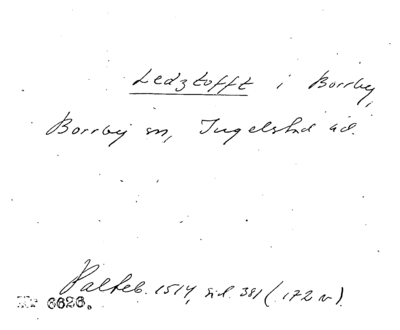 Ledztofft i Borrby,
Borrby sn, Ingelstad hd.
Palteb. 1514, sid. 381 (172 v).
Nr 6626.